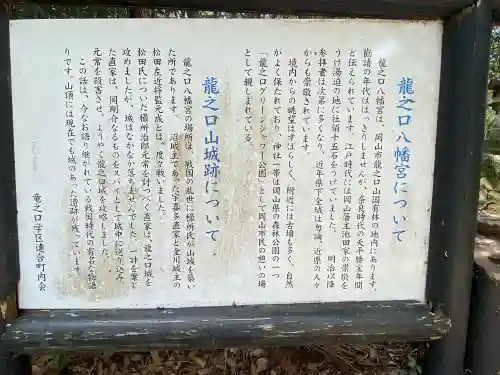 龍之口八幡宮について
龍之口八幡宮は、岡山市龍之口山国有林の地内にあります。
勧請の年代ははっきりしませんが、奈良時代の天平勝宝年間
と伝えられています。江戸時代には岡山藩主池田家の崇敬を
うけ湯迫の地に社領十五石をうけていました。　明治以降
参拝者は次第に多くなり、近年県下全域は勿論、近県の人々
からも崇敬されています。
境内からの眺望はすばらしく、附近には古墳も多く、自然
がよく保たれており、神社一帯は岡山県の森林公園の一つ
「龍之口グリーンシャワー公園」として岡山市民の憩いの場
として親しまれている。
龍之口山城跡について
龍之口八幡宮の場所は、戦国の乱世に穝所氏が山城を築い
た所であります。沼城主であった宇喜多直家と金川城主の
松田左近将監元成とは、度々戦いました。
松田氏についた穝所治部元常を討つべく直家は、龍之口城を
攻めましたが、城はなかなか落ちませんでした。計を案じ
た直家は、岡剛介なるものをスパイとして城中に送り込み、
元常を殺害させ、ようやく龍之口城を攻略しました。
この話は、今なお語り継がれている戦国時代の有名な物語
りです。山頂には現在でも城のあった遺跡が残っています。
竜之口学区連合町内会